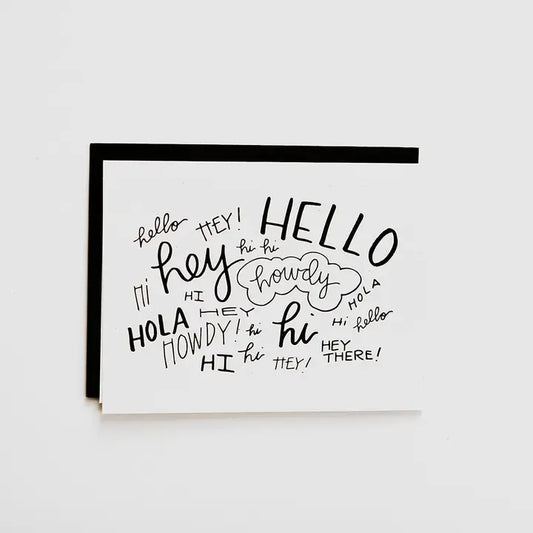 hello HEY! HELLO
hey hi hi
howdy
Hi HI HOLA
HEY
HOLA HOWDY! hi hi Hi hello
HI hi HEY! HEY THERE!